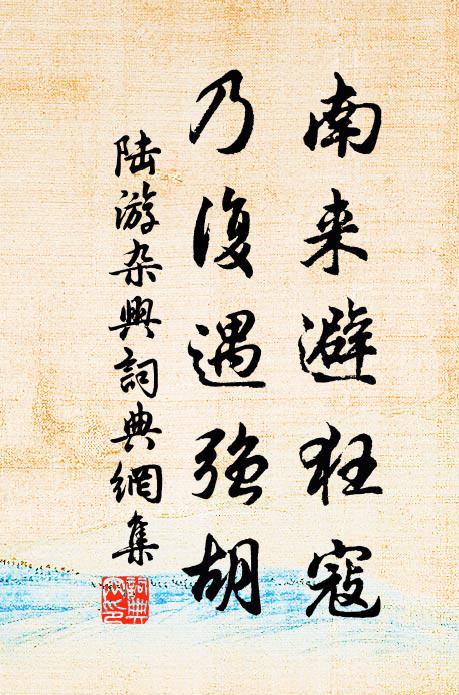 南来避狂寇
乃復遇強胡
陆游杂興詞典網集
詞典